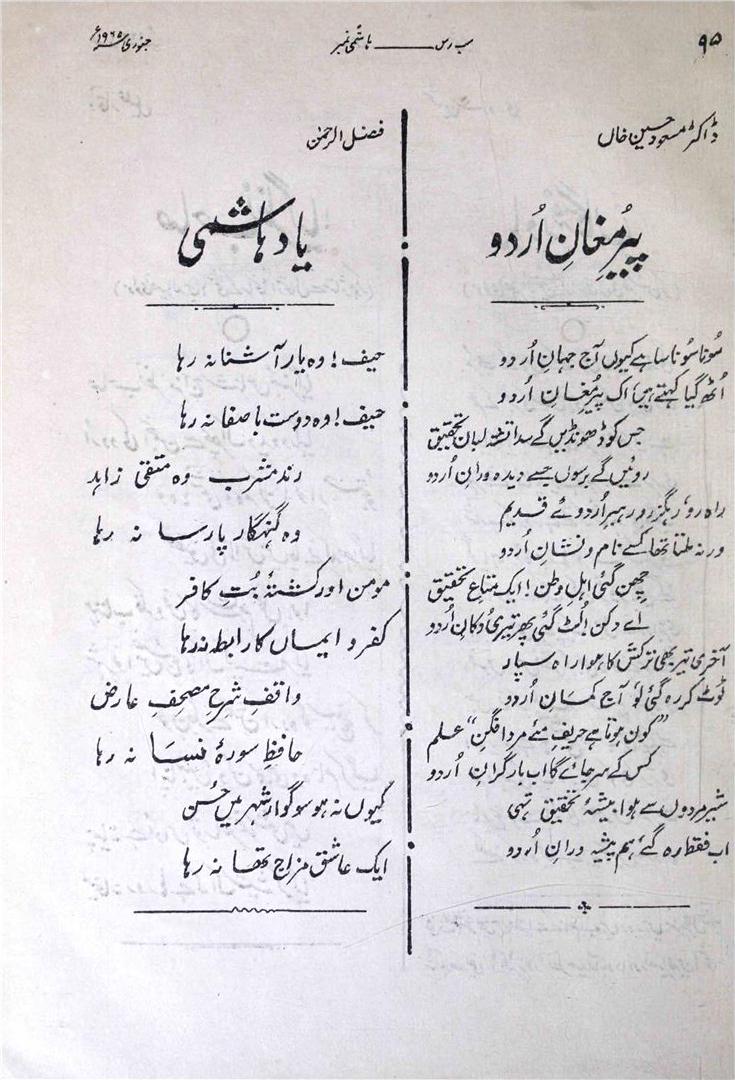 ۹۵
سب رس ــــــ ہاشمی نمبر
جنوری سنہ ۱۹۶۵ء
ڈاکٹر مسعود حسین خاں
پیرِ مغانِ اُردو
سُونا سُونا سا ہے کیوں آج جہانِ اُردو
اُٹھ گیا کہتے ہیں، اک پیرِ مُغانِ اُردو
جس کو ڈھونڈیں گے سدا تشنہ لبانِ تحقیق
روئیں گے برسوں جسے دیدہ ورانِ اُردو
راہ رو، رہگزر و رہبرِ اُردوئے قدیم
ورنہ ملتا تھا کسے نام و نشانِ اُردو
چھن گئی اہلِ وطن! ایک متاعِ تحقیق
اے دکن! لُٹ گئی پھر تیری دُکانِ اُردو
آخری تیر بھی ترکش کا ہوا راہ سپار
ٹوٹ کر رہ گئی لو آج کمانِ اُردو
”کون ہوتا ہے حریفِ مئے مرد افگنِ“ علم
کس کے سر جائے گا اب بارِ گرانِ اُردو
شیر مردوں سے ہوا، بیشۂ تحقیق تہی
اب فقط رہ گئے ہم پیشہ ورانِ اُردو
فضل الرحمٰن
یادِ ہاشمی
حیف! وہ یار آشنا نہ رہا
حیف! وہ دوست با صفا نہ رہا
رند مشرب وہ متقی زاہد
وہ گنہگار پارسا نہ رہا
مومن اور کشتۂ بُتِ کافر
کفر و ایماں کا رابطہ نہ رہا
واقفِ شرحِ مصحفِ عارض
حافظِ سورۂ نسا نہ رہا
کیوں نہ ہو سوگوار شہر میں حُسن
ایک عاشق مزاج تھا نہ رہا